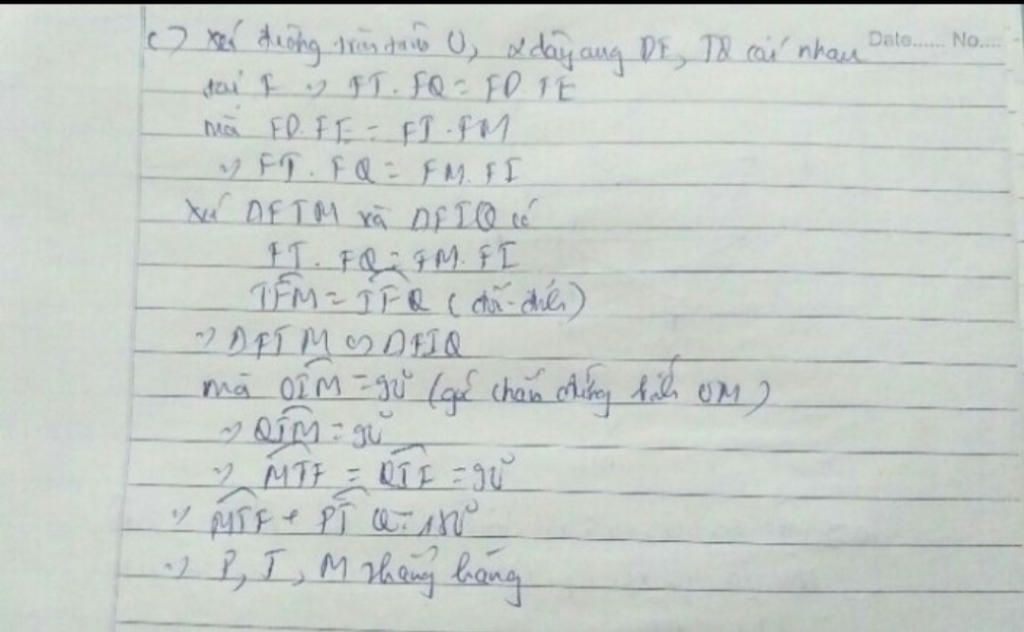 c) xét đường tròn tâm O, 2 dây cung DE, TQ cắt nhau Date...... No....
tại F => FT . FQ = FD . FE
mà FD. FE = FI . FM
=> FT . FQ = FM . FI
Xét ΔFTM và ΔFIQ có
FT . FQ = FM. FI
TFM = IFQ (đối-đỉnh)
=> ΔFTM ∽ ΔFIQ
mà OIM = 90° (góc chắn đường kính OM)
=> QIM = 90°
=> MTF = QIF = 90°
=> MTF + PTQ = 180°
=> P, T, M thẳng hàng